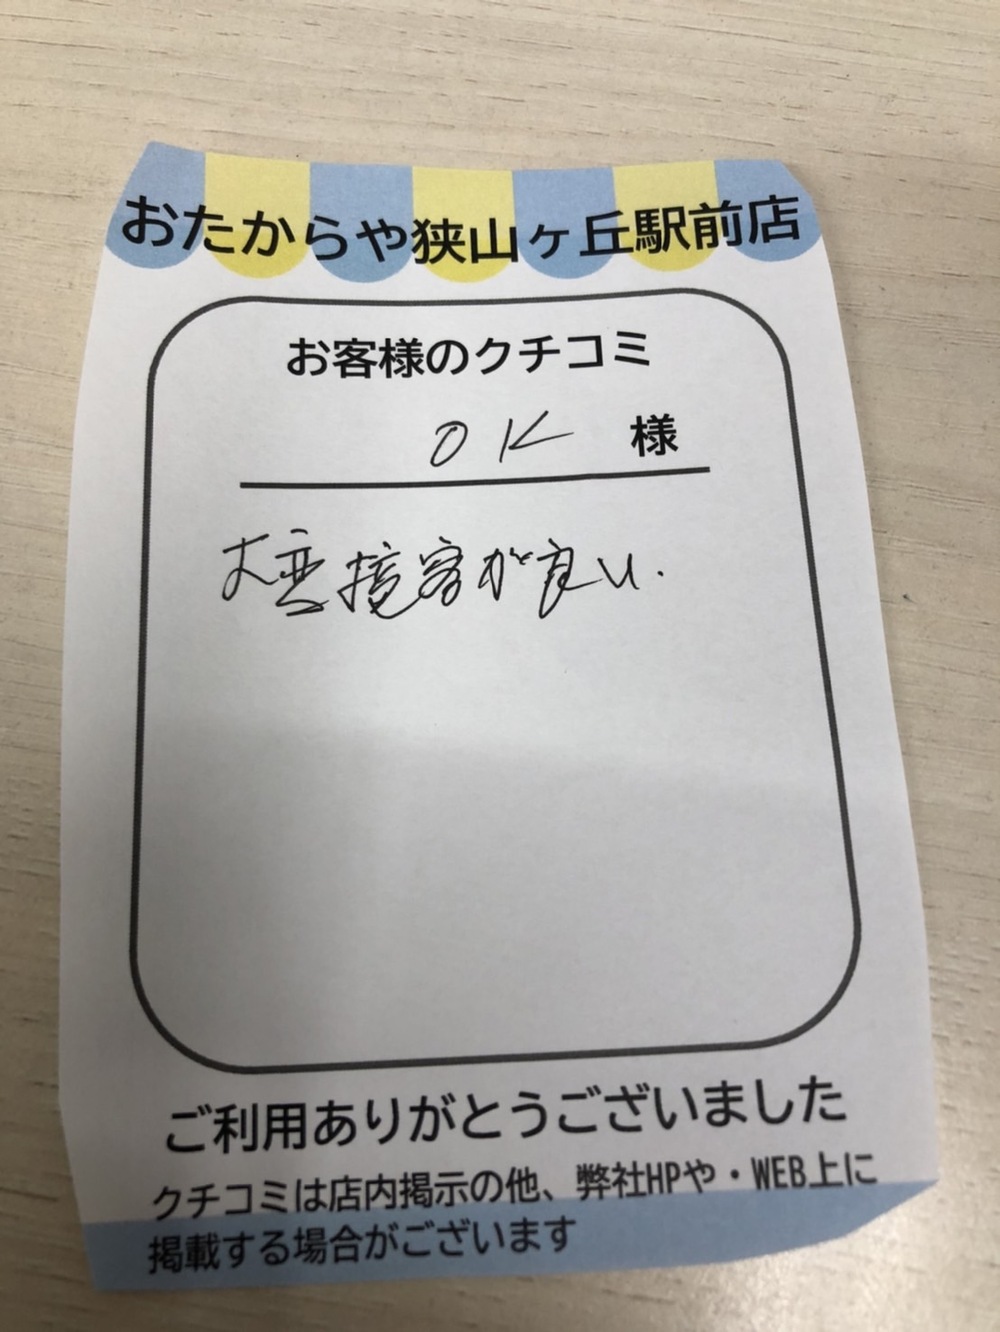 おたからや狭山ヶ丘駅前店
お客様のクチコミ
OK 様
大変接客が良い.
ご利用ありがとうございました
クチコミは店内掲示の他、弊社HPや・WEB上に
掲載する場合がございます